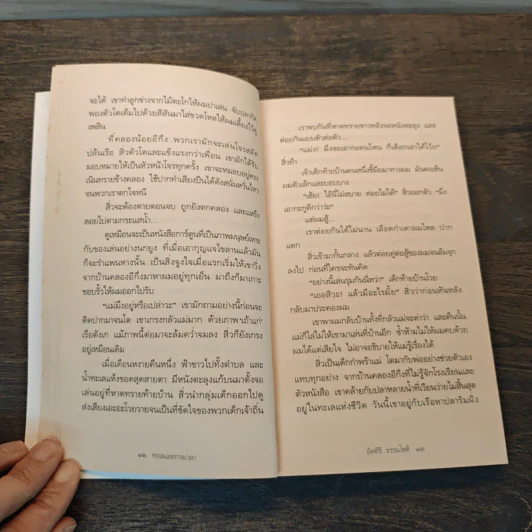 จะได้ เขาทำลูกช่างจากไม้ตะโกให้ผมปาเล่น จับปลากัด
พองตัวโตเต็มไปด้วยสีสันมาใส่ขวดโหลให้ผมเลี้ยงไว้ดู
เพลิน
ที่คลองน้อยอีกึ่ง พวกเรามักจะเล่นโจรสลัด
ปล้นเรือ สิวตัวโตและแข็งแรงกว่าเพื่อน เขามักได้รับ
มอบหมายให้เป็นหัวหน้าโจรทุกครั้ง เขาจะหมอบอยู่ตรง
เนินทรายข้างคลอง ใช้ปากทำเสียงปืนได้ดังสนั่นหวั่นไหว
จนพวกเราตกใจหนี
สิวจะต้องตายตอนจบ ถูกยิงตกคลอง และแสร้ง
ลอยไปตามกระแสน้ำ...
ดูเหมือนจะเป็นหนังสือการ์ตูนที่เป็นภาพมนุษย์เหาะ
กับของเล่นอย่างนกยูง ที่เมื่อเอากุญแจไขลานแล้วมัน
ก็จะรำแพนหางนั้น เป็นสิ่งจูงใจเมื่อแรกเริ่มให้เขาวิ่ง
จากบ้านคลองอีกึ่งมาหาผมอยู่ทุกเย็น มาถึงก็มาเกาะ
ขอบรั้วให้ผมออกไปรับ
"แม่มึงอยู่หรือเปล่าวะ" เขามักถามอย่างนี้ก่อนจะ
ติดปากมาจนโต เขาเกรงกลัวแม่มาก ด้วยภาพ "เจ้าแก่"
เรือดังเก แม้ภาพนี้ต่อมาจะล้มคว่ำจมลง สิวก็ยังเกรง
อยู่เหมือนเดิม
เมื่อเดือนหงายคืนหนึ่ง ฟ้าขาวไปทั้งตำบล และ
น้ำทะเลแห้งขอดสุดสายตา มีหนังตะลุงแก้บนมาตั้งจอ
เล่นอยู่ที่หาดทรายท้ายบ้าน สิวนำกลุ่มเด็กออกไปดู
ส่งเสียงเอะอะโวยวายจนเป็นที่ขัดใจของพวกเด็กเจ้าถิ่น
๑๒ ทะเลและกาลเวลา
เราพบกันที่หาดทรายขาวหลังจอหนังตะลุง และ
ต่อยกันแบบตัวต่อตัว...
"แม่ง! มึงจะเอากะคนไหน ก็เลือกเอาได้โว้ย"
สิวท้า
เจ้าเด็กท้ายบ้านคนหนึ่งชี้มือมาทางผม มันคงเห็น
ผมตัวเล็กและบอบบาง
"เฮ้ย! ไอ้นี่ไม่สบาย ต่อยไม่ได้" สิวออกตัว "มึง
เอากะกูดีกว่าว่ะ"
แต่ผมสู้...
เราต่อยกันได้ไม่นาน เลือดกำเดาผมไหล ปาก
แตก
สิวเข้ามากั้นกลาง แล้วต่อยคู่ต่อสู้ของผมจนล้มจุก
ลงไป ก่อนที่ใครจะทันคิด
"อย่างนี้เล่นรุมกันนี่หว่า" เด็กท้ายบ้านโวย
"เออสิวะ! แล้วมีอะไรมั้ย" สิวว่าก่อนหันหลัง
กลับมาประคองผม
เขาพาผมกลับบ้านทั้งที่กลัวแม่จะด่า และคืนนั้น
แม่ก็ไล่ไม่ให้เขามาเล่นที่บ้านอีก ซ้ำห้ามไม่ให้ผมคบด้วย
ผมได้แต่เสียใจ ไม่อาจอธิบายให้แม่รู้เรื่องได้
สิวเป็นเด็กกำพร้าแม่ โตมากับพ่ออย่างช่วยตัวเอง
แทบทุกอย่าง จากบ้านคลองอีกึ่งที่ไม่รู้จักโรงเรียนและ
ตัวหนังสือ เขาคล้ายกับปลาหลายน้ำที่เวียนว่ายไม่สิ้นสุด
อยู่ในทะเลแห่งชีวิต วันนี้เขาอยู่กับเรือหาปลาริมฝั่ง
อัตถิริ ธรรมโชติ ๑๓